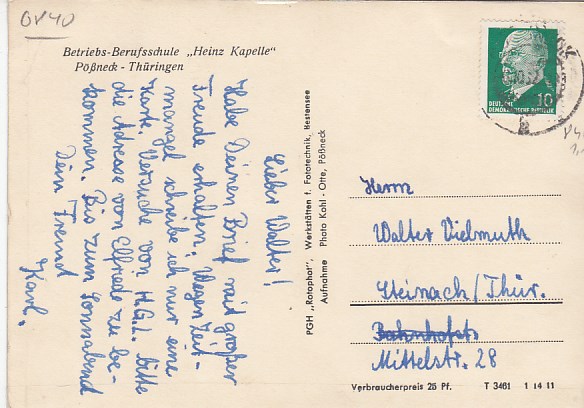 OV40
Betriebs-Berufsschule „Heinz Kapelle"
Pößneck - Thüringen
Lieber Walter!
Habe Deinen Brief mit großer
Freude erhalten. Wegen Zeit-
mangel schreibe ich nur eine
Karte. Versuche von H.G.L. bitte
die Adresse von Elfrede zu be-
kommen. Bis zum Sonnabend
Dein Freund
Karl.
PGH „Rotophot", Werkstätten f. Fototechnik, Bestensee
Aufnahme Photo Kahl-Otte, Pößneck
DEUTSCHE
DEMOKRATISCHE REPUBLIK
10
Herrn
Walter Vielmuth
Steinach/Thür.
Bahnhofstr
Mittelstr. 28
Verbraucherpreis 25 Pf. T 3461 1 14 11